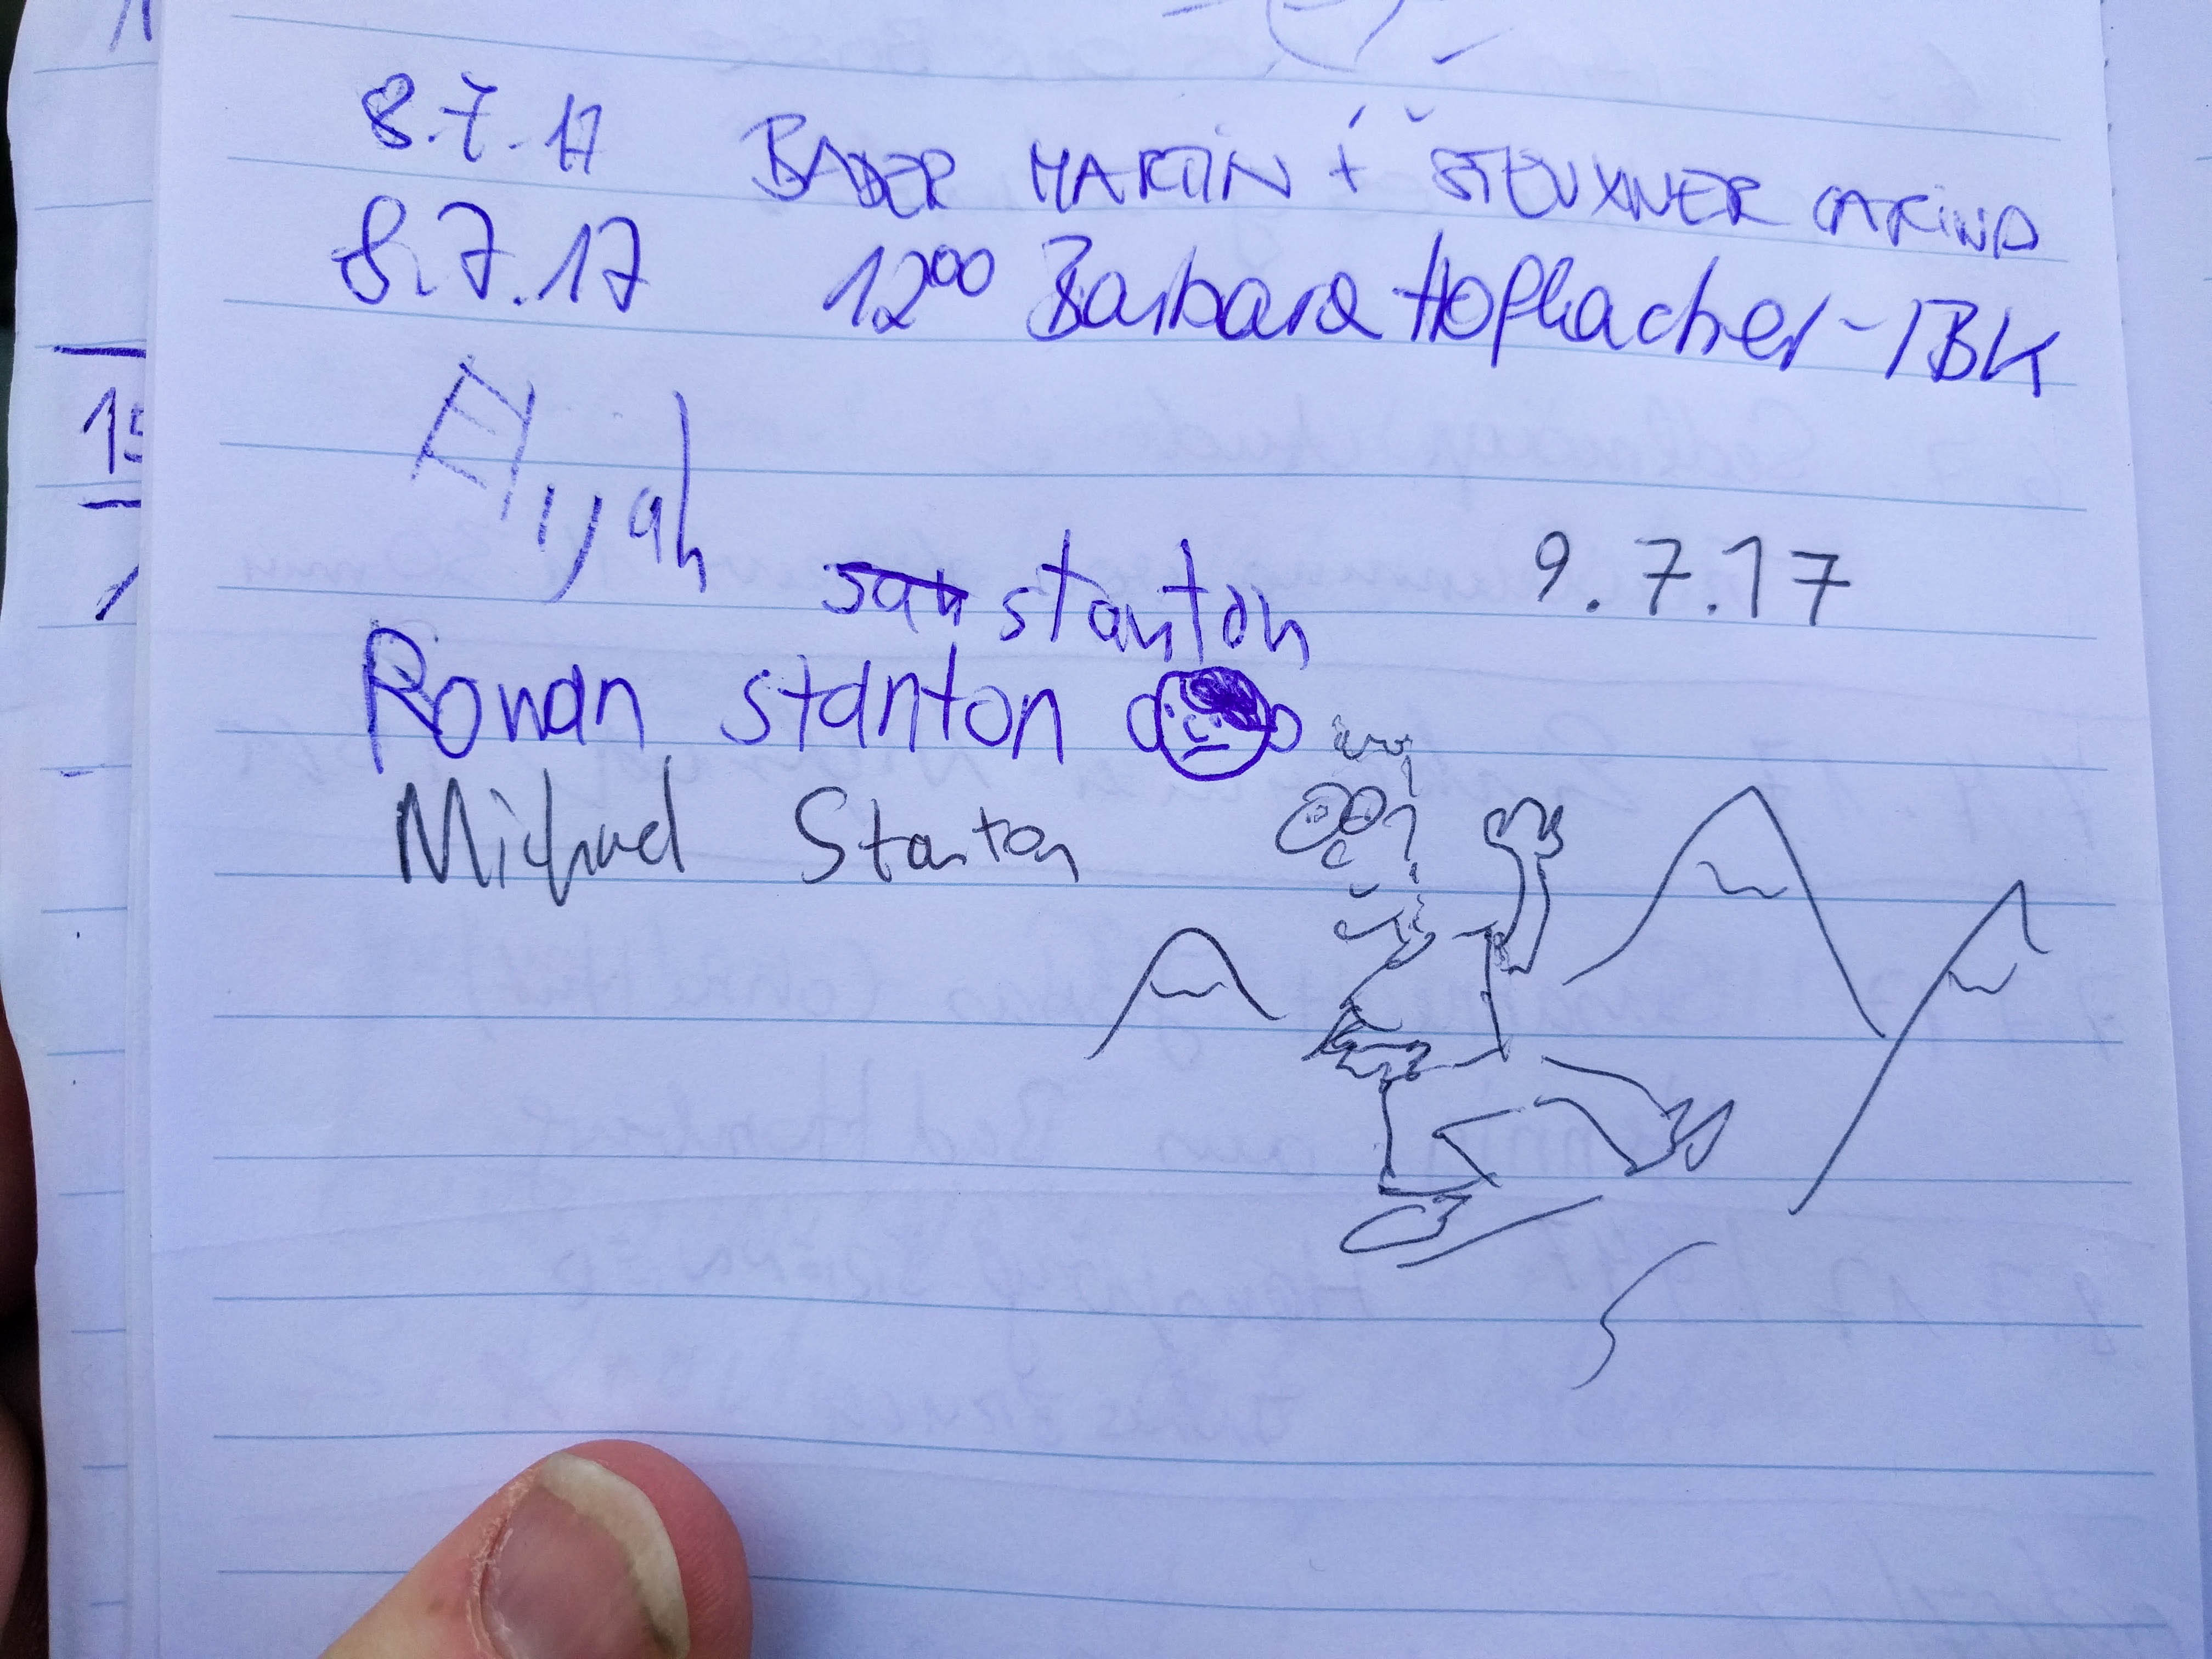 8.7.17 BADER MARTIN +
8.7.17 12⁰⁰ Barbara Hoflacher - IBK
Elijah stanton 9.7.17
Rowan stanton
Michael Stanton
15